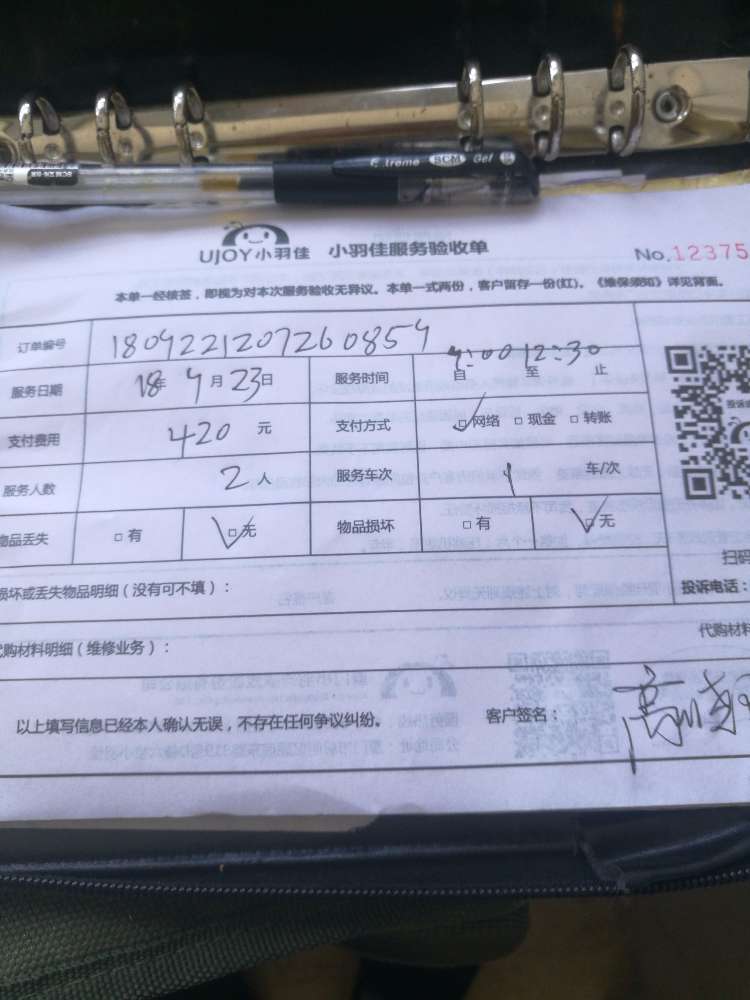 BCM Gel
UJOY小羽佳 小羽佳服务验收单
No.12375
本单一经核签，即视为对本次服务验收无异议。本单一式两份，客户留存一份(红)。《维保须知》详见背面。
订单编号 1809221207260854
服务日期 18年 9月23日 服务时间 自 9:00 至 12:30 止
支付费用 420 元 支付方式 ☑网络 □现金 □转账
服务人数 2人 服务车次 1 车/次
物品丢失 □有 ☑无 物品损坏 □有 ☑无
扫码
损坏或丢失物品明细（没有可不填）：
投诉电话：
代购材料明细（维修业务）：
代购材料
以上填写信息已经本人确认无误，不存在任何争议纠纷。 客户签名：